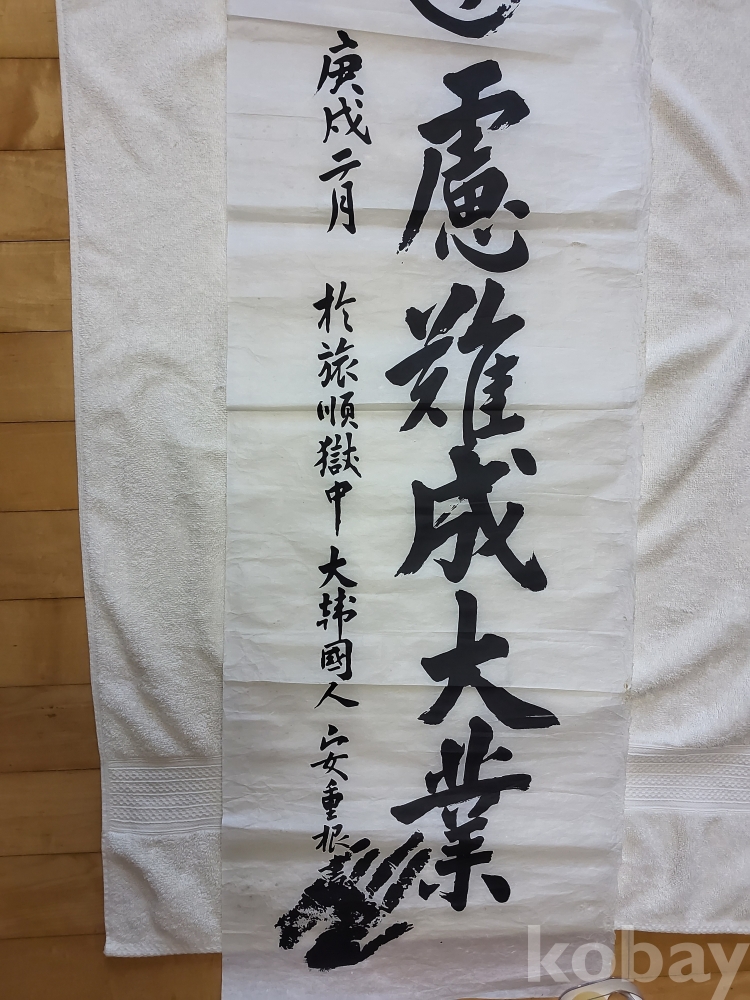 慮難成大業
庚戌二月 於旅順獄中 大韓國人 安重根書
kobay